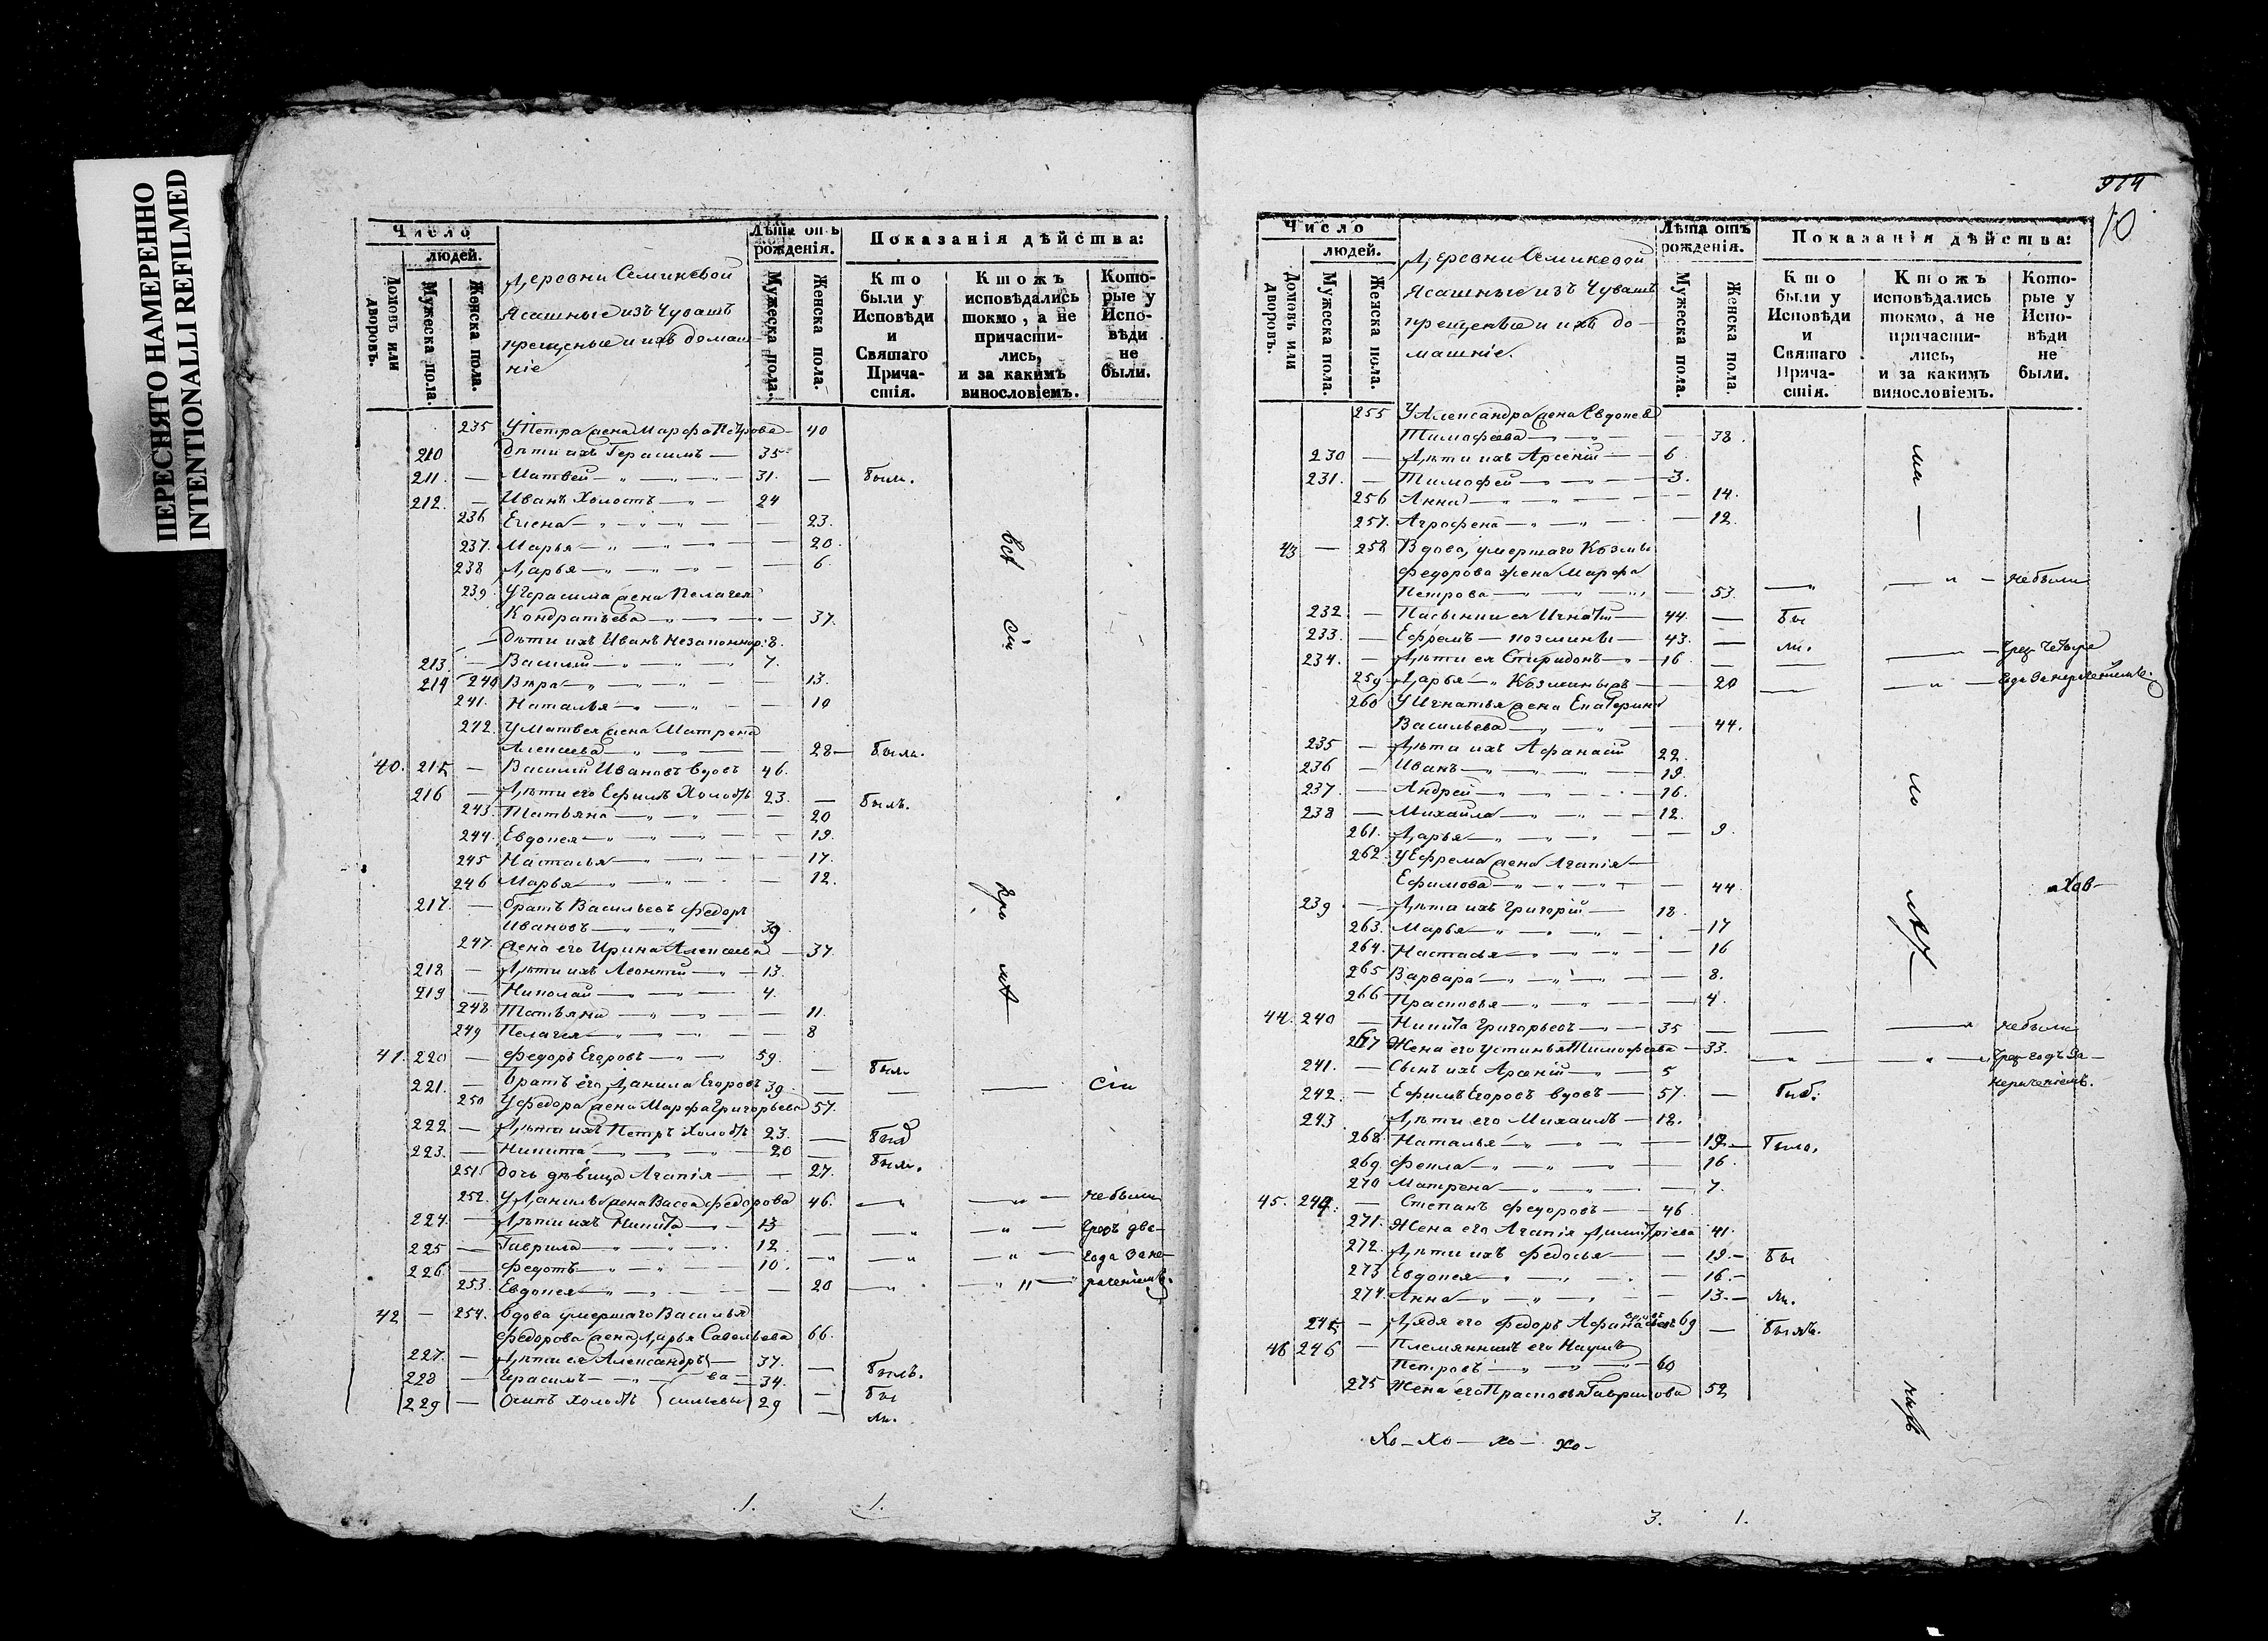 ПЕРЕСНЯТО НАМЕРЕННО
INTENTIONALLI REFILMED
Число
людей.
Домовъ или дворовъ.
Мужеска пола.
Женска пола.
Деревни Семикевой
Ясашные изъ Чувашъ
крещеные и ихъ домаш
ніе
Лѣта отъ рожденія.
Мужеска пола.
Женска пола.
Показанія дѣйства:
Кто были у Исповѣди и Святаго Причастія.
Ктожъ исповѣдались токмо, а не причастились, и за какимъ винословіемъ.
Которые у Исповѣди не были.
235 У Петра жена Марфа Петрова 40
210 Дѣти ихъ Герасимъ 35
211. Матвей 31. были.
212. Иванъ Холостъ 24
236 Елена 23.
237. Марья 20.
238 Дарья 6.
239. У Герасима жена Пелагея
Кондратьева 37.
Дѣти ихъ Иванъ 8.
213. Василій 7.
214 240 Вѣра 13.
241. Наталья 10
242. У Матвея жена Матрена
Алексеева 28 была.
40. 215 Василій Ивановъ вдовъ 46.
216 Дѣти его Ефимъ Холостъ 23. былъ.
243. Татьяна 20
244. Евдокея 19.
245 Настасья 17.
246 Марья 12.
217. Братъ Васильевъ Федоръ
Ивановъ 39
247. Жена его Ирина Алексеева 37.
218 Дѣти ихъ Леонтій 13.
219 Николай 4.
248 Татьяна 11.
249 Пелагея 8
41. 220 Федоръ Егоровъ 59. были
221. Братъ его Данила Егоровъ 39. сіи
250 У Федора жена Марфа Григорьева 57.
222 Дѣти ихъ Петръ Холостъ 23.
223. Никита 20 были.
251. Дочь девица Агапія 27.
252. У Данилы жена Васса Федорова 46. небыли
224. Дѣти ихъ Никита 13 чрезъ два
225 Гаврила 12. года за не
226 Федотъ 10. раченіемъ.
253. Евдокея 20
42 254. Вдова умершаго Василья
Федорова жена Дарья Савельева 66.
227. Дѣти ея Александръ 37. былъ.
228 Герасимъ ва 34. бы
229 Осипъ холостъ сильевы 29 ли.
всѣ
сіи
1. 1.
974
10
Число
людей.
Домовъ или дворовъ.
Мужеска пола.
Женска пола.
Деревни Семикевой
Ясашные изъ Чувашъ
крещеные и ихъ до-
машніе.
Лѣта отъ рожденія.
Мужеска пола.
Женска пола.
Показанія дѣйства:
Кто были у Исповѣди и Святаго Причастія.
Ктожъ исповѣдались токмо, а не причастились, и за какимъ винословіемъ.
Которые у Исповѣди не были.
255 У Александра жена Евдокея
Тимофеева 38.
230 Дѣти ихъ Арсеній 6.
231. Тимофей 3.
256 Анна 14.
257. Агрофена 12.
43 258 Вдова, умершаго Козмы
Федорова жена Марфа
Петрова 53. небыли
232 Пасынки ея Игнатій 44. бы
233. Ефремъ козмины 43. ли.
234. Дѣти ея Спиридонъ 16 чрез четыре
259 Дарья Козминыхъ 20
260 У Игнатья жена Екатерина
Васильева 44.
235 Дѣти ихъ Афанасій 22.
236 Иванъ 19.
237. Андрей 16.
238 Михайла 12.
261. Дарья 9.
262. У Ефрема жена Агапія
Ефимова 44.
239 Дѣти ихъ Григорій 18.
263. Марья 17
264. Настасья 16
265 Варвара 8.
266 Прасковья 4.
44. 240 Никита Григорьевъ 35 небыли
267 Жена его Устинья Тимофеева 33. чрез годъ за
241. Сынъ ихъ Арсеній 5 нераченіемъ.
242. Ефимъ Егоровъ вдовъ 57.
243 Дѣти его Михаилъ 12.
268. Наталья 19 была.
269. Фекла 16.
270 Матрена 7.
45. 244. Степанъ Федоровъ 46.
271. Жена его Агапія Димитріева 41.
272. Дѣти ихъ Федосья 19. бы
273 Евдокея 16.
274. Анна 13. ли.
245 Дядя его Федоръ Афанасьевъ вдовъ 69 былъ.
46 246 Племянникъ его Наумъ
Петровъ 60
275 Жена его Прасковья Гаврилова 52
Хо- Хо- хо- хо-
3. 1.